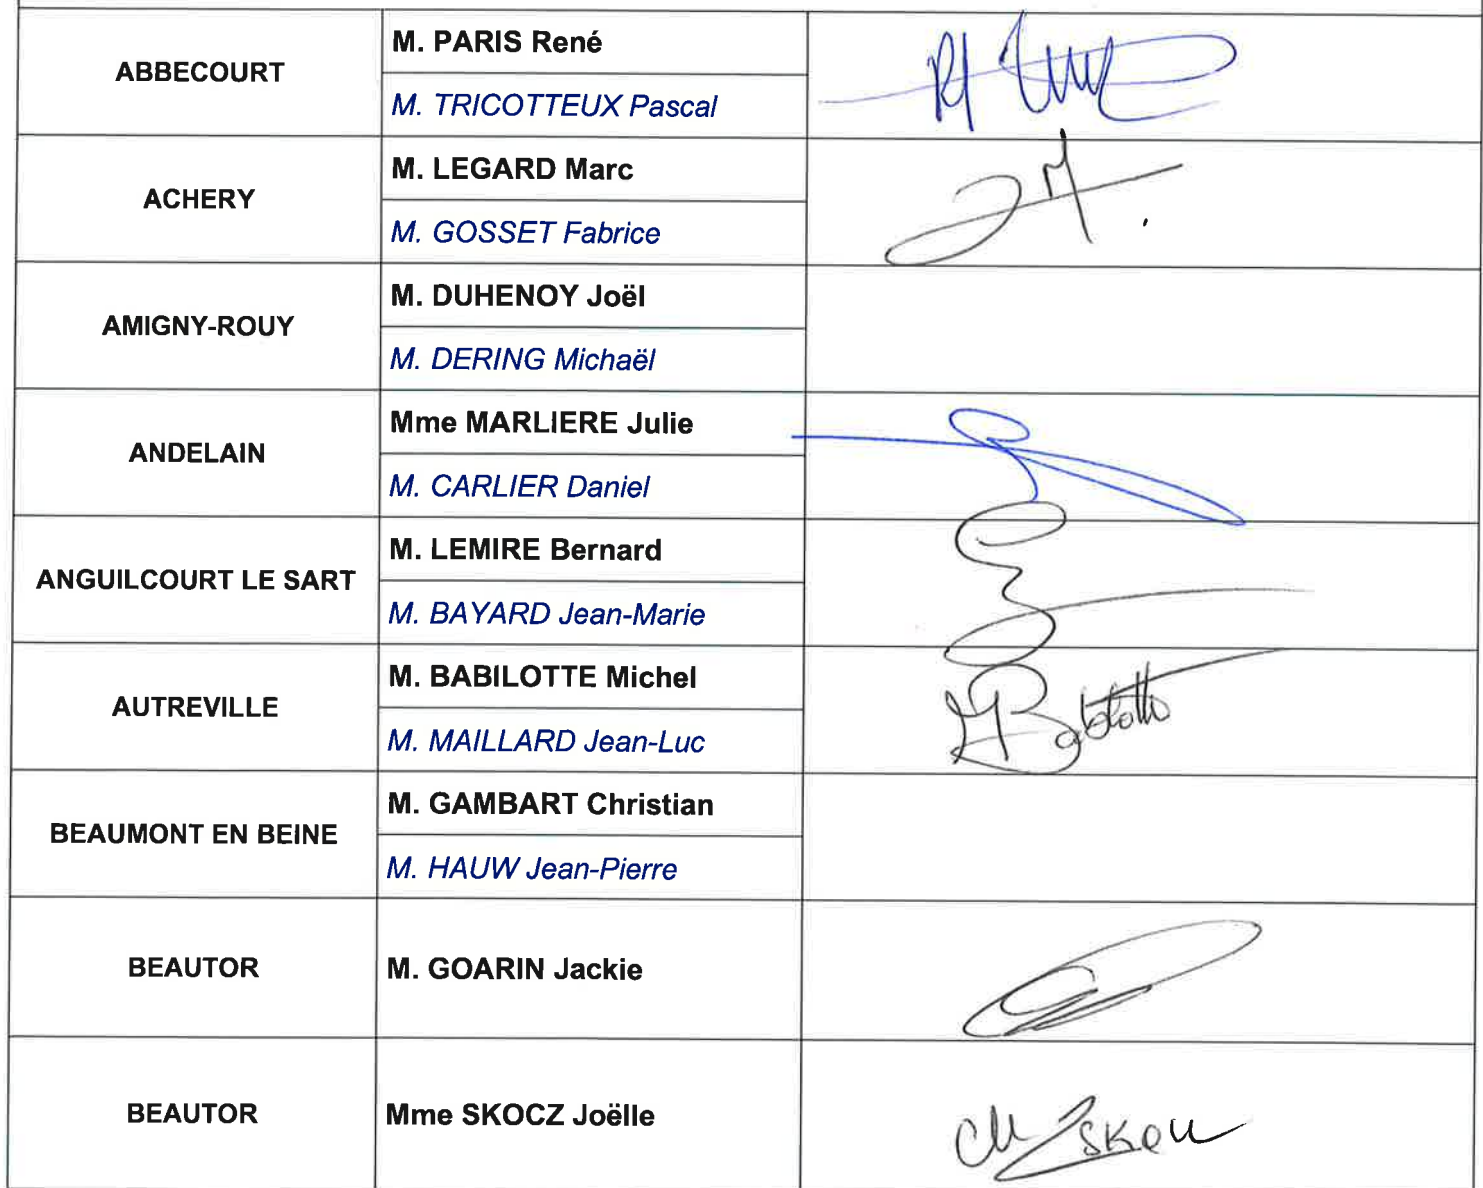 ABBECOURT
M. PARIS René
M. TRICOTTEUX Pascal
ACHERY
M. LEGARD Marc
M. GOSSET Fabrice
AMIGNY-ROUY
M. DUHENOY Joël
M. DERING Michaël
ANDELAIN
Mme MARLIERE Julie
M. CARLIER Daniel
ANGUILCOURT LE SART
M. LEMIRE Bernard
M. BAYARD Jean-Marie
AUTREVILLE
M. BABILOTTE Michel
M. MAILLARD Jean-Luc
BEAUMONT EN BEINE
M. GAMBART Christian
M. HAUW Jean-Pierre
BEAUTOR
M. GOARIN Jackie
BEAUTOR
Mme SKOCZ Joëlle